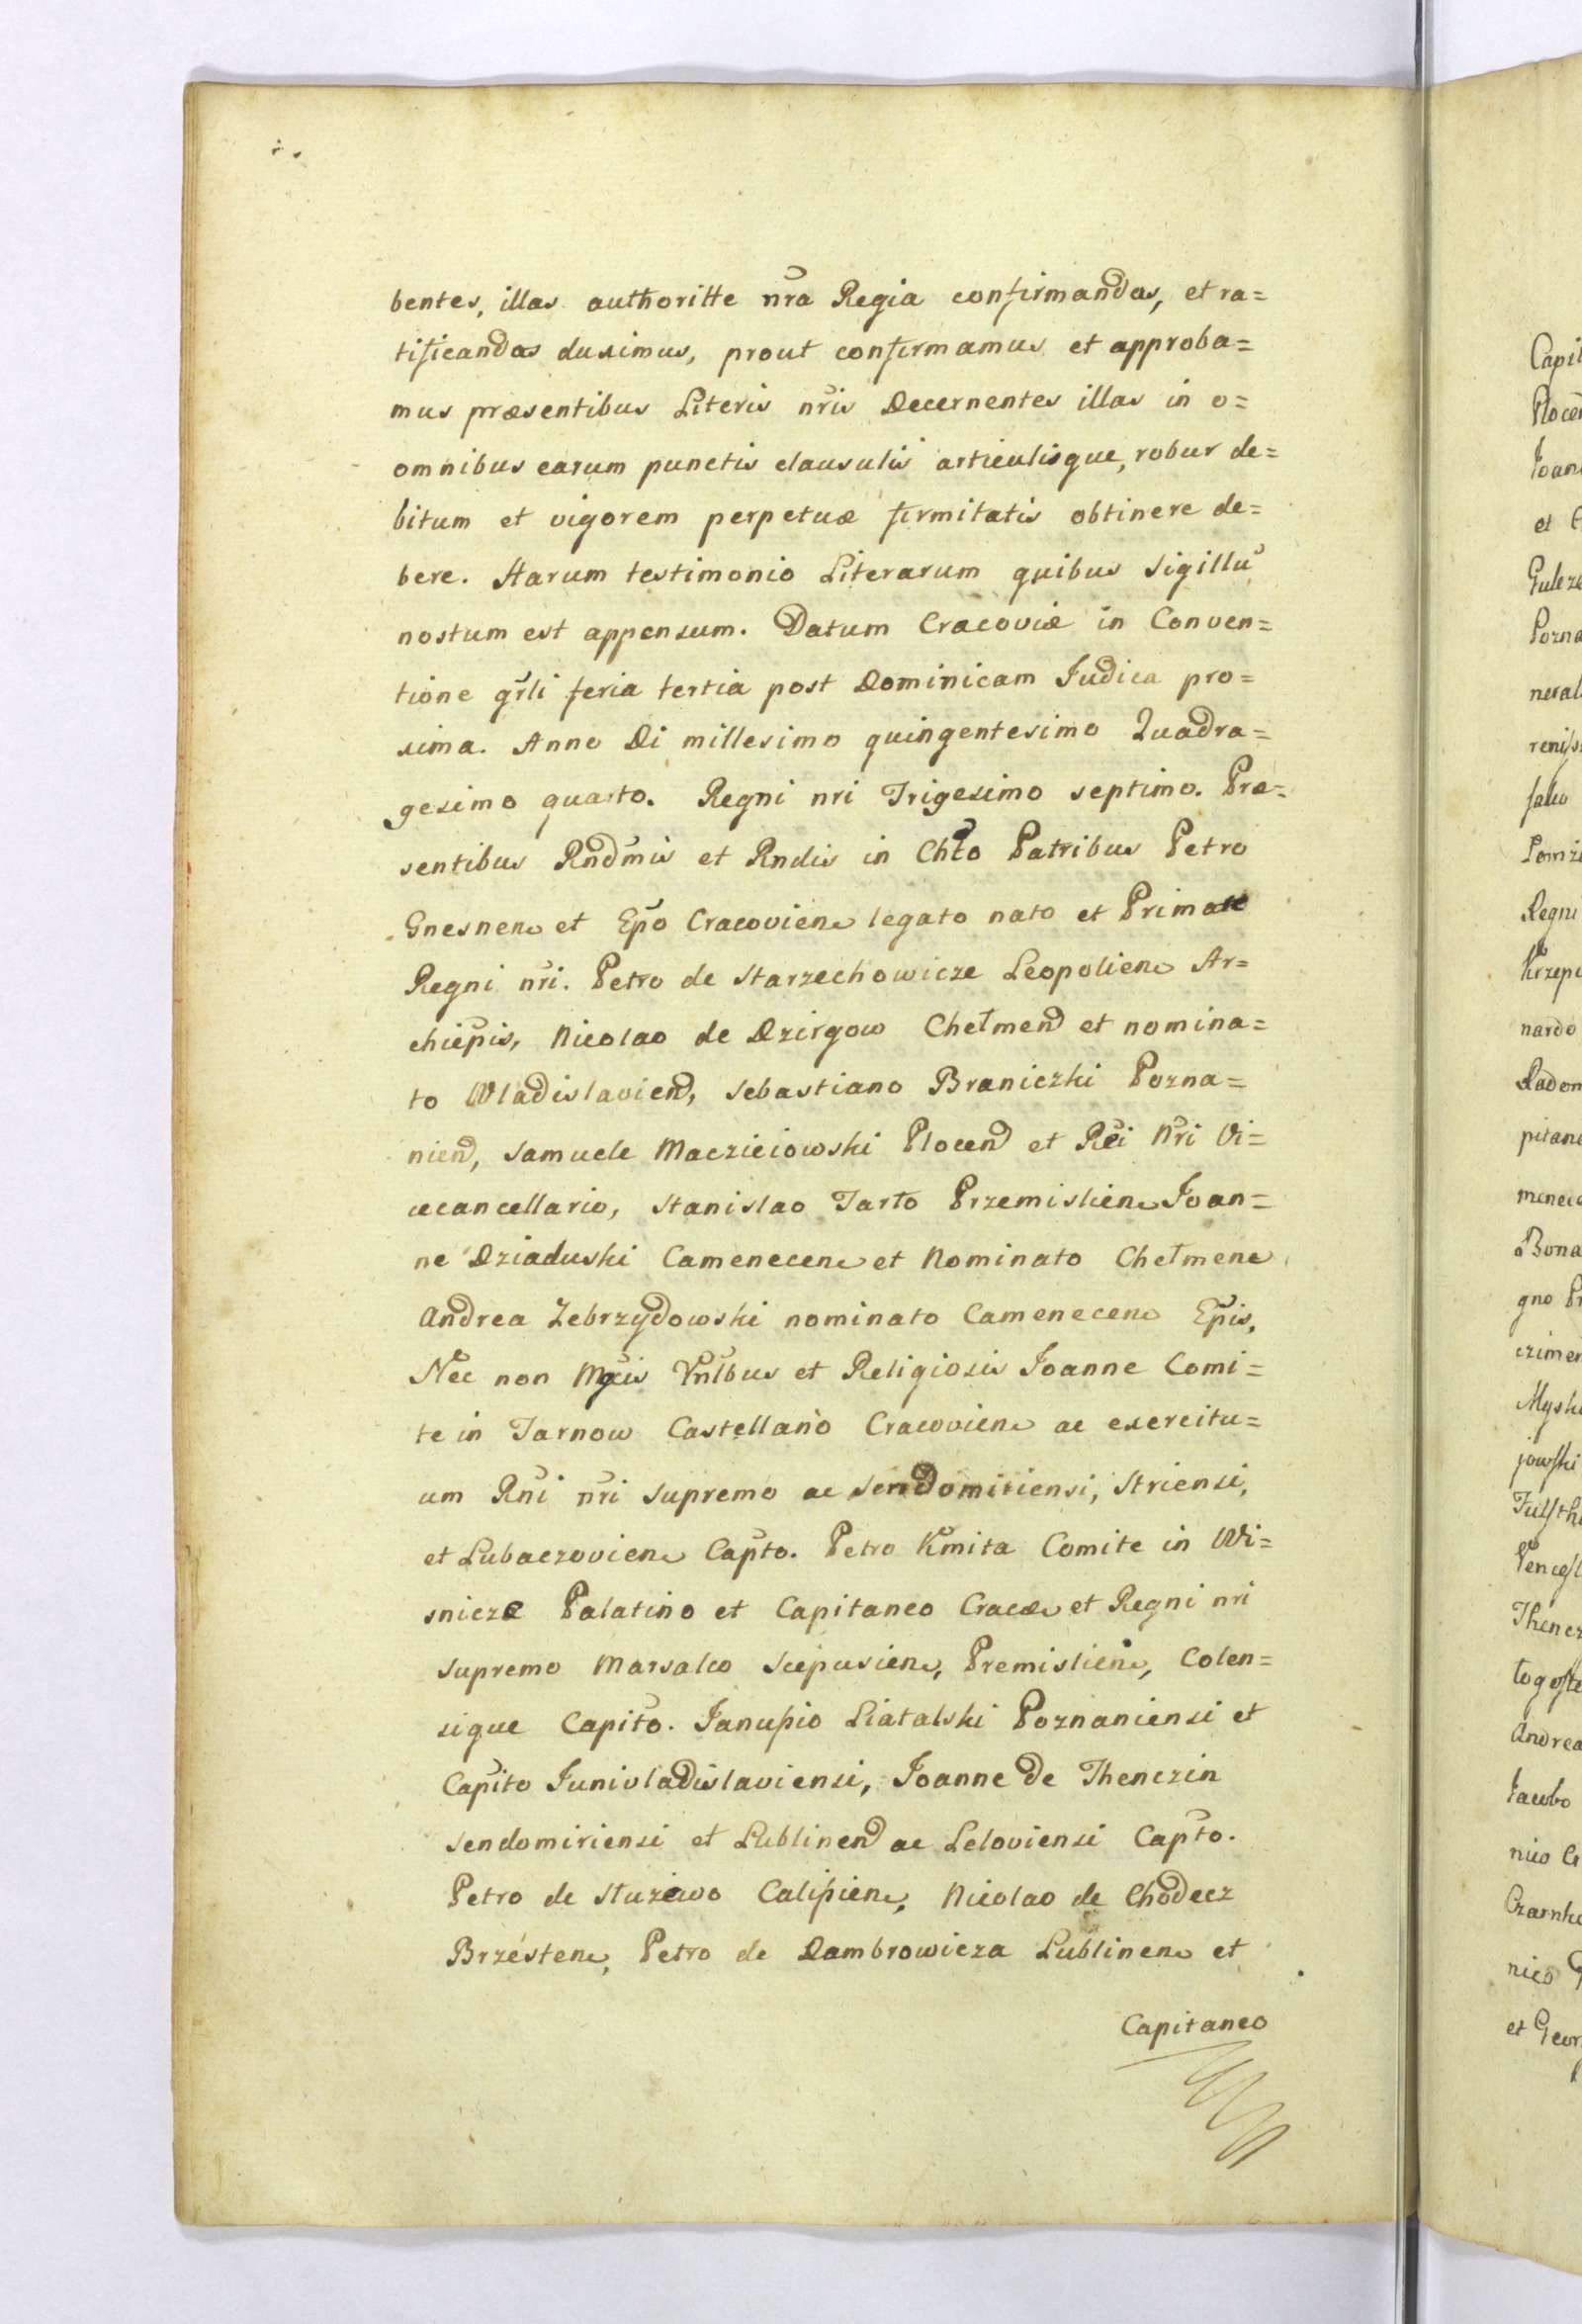 bentes, illas authoritte nra Regia confirmandas, et ra=
tificandas duximus, prout confirmamus et approba=
mus præsentibus Literis nris Decernentes illas in o=
omnibus earum punctis clausulis articulisque, robur de=
bitum et vigorem perpetuæ firmitatis obtinere de=
bere. Harum testimonio Literarum quibus Sigillū
nostum est appensum. Datum Cracoviæ in Conven=
tione grli feria tertia post Dominicam Judica pro=
xima. Anno Di millesimo quingentesimo Quadra=
gesimo quarto. Regni nri Trigesimo septimo. Præ=
sentibus Rndmis et Rndis in Chto Patribus Petro
Gnesnen et Epo Cracovien legato nato et Primate
Regni nri. Petro de Starzechowicze Leopolien Ar=
chiepis, Nicolao de Dzirgow Chełmen et nomina=
to Wladislavien, Sebastiano Braniczki Pozna=
nien, Samuele Maczieiowski Plocen et Rei Nri Vi=
cecancellario, Stanislao Tarło Przemislien Joan=
ne Dziaduski Camenecen et Nominato Chełmene
Andrea Zebrzydowski nominato Camenecen Epis,
Nec non Mgcis Vnlbus et Religiosis Joanne Comi=
te in Tarnow Castellano Cracovien ac exercitu=
um Rni nri Supremo ac Sendomiriensi, Striensi,
et Lubaczovien Capto. Petro Kmita Comite in Wi=
snicze Palatino et Capitaneo Cracæ et Regni nri
Supremo Marsalco Scepusien, Premislien, Colen=
sique Capito. Janusio Liatalski Poznaniensi et
Capito Junivladislaviensi, Joanne de Thenczin
Sendomiriensi et Lublinen ac Leloviensi Capto.
Petro de Sluzewo Calisien, Nicolao de Chodecz
Brzesten, Petro de Dambrowicza Lublinen et
Capitaneo
Capit
Ploce
Joan
et
Gulcz
Pozna
neral
Lomzi
Regni
Krzepi
nardo
Radom
pitane
menec
Bona
gno
czimer
Mysk
jowski
Thencz
Andrea
Jacobo
Czarnk
et Geor